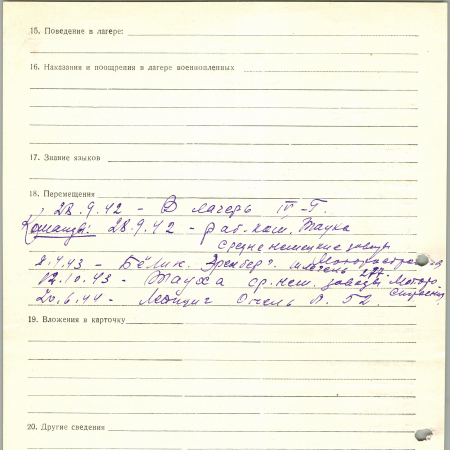 15. Поведение в лагере:
16. Наказания и поощрения в лагере военнопленных
17. Знание языков
18. Перемещения
28.9.42 - В лагерь IV-Г.
Команды: 28.9.42 - раб. ком. Тауха
Средненемецкие заводы
.4.43 -
12.10.43 - Тауха ср. нем. заводы Мотора
20.6.44 - Лейпциг
19. Вложения в карточку
20. Другие сведения